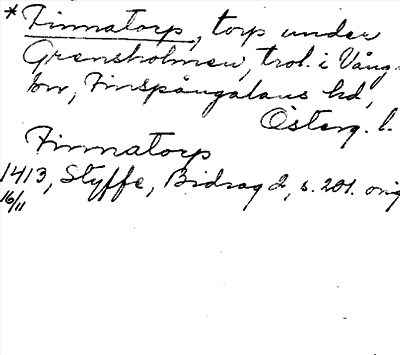 *Finnatorp, torp under
Grensholmen, trol. i Vång-
sn, Finspångaläns hd,
Österg. l.
Finnatorp
1413, Styffe, Bidrag 2, s. 201. orig
16/11